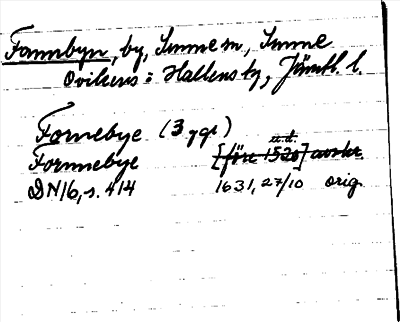 Fannbyn, by, Sunne sn, Sunne
Ovikens o Hallens tg, Jämtl. l.
Fornebye (3 ggr)
u.d.
Fornnebye [före 1520] avskr.
DN16, s. 414 1631, 27/10 orig.